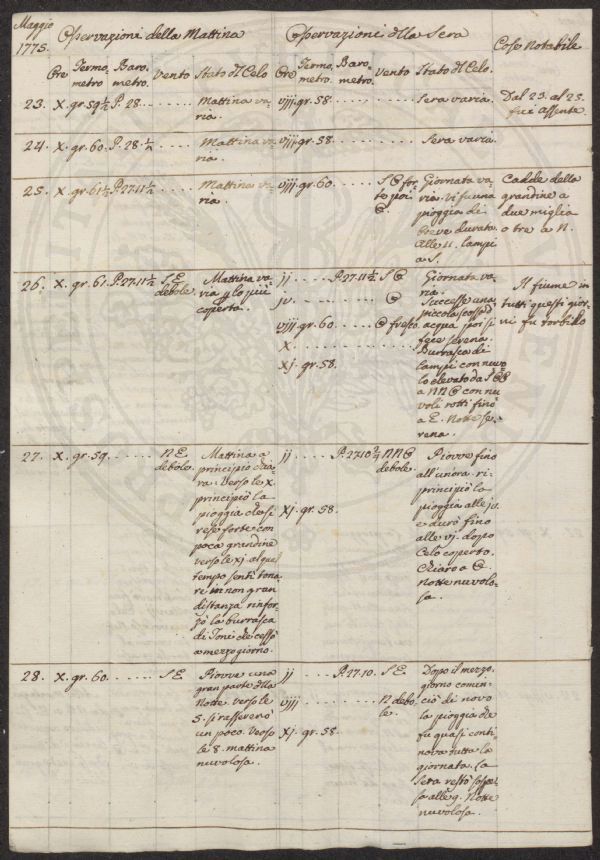 Maggio 1775.
Osservazioni della Mattina
Osservazioni dlla Sera
Cose Notabile
Ore Termometro. Barometro. Vento Stato dl Celo
Ore Termometro. Barometro. Vento Stato dl Celo.
23. X. gr. 59½ P. 28. . . . . . . Mattina varia.
viij. gr. 58. . . . . . . . Sera varia.
Dal 23. al 25.
fui assente
24. X. gr. 60. P. 28. . . . . . . Mattina varia.
viij. gr. 58. . . . . . . . Sera varia.
25. X. gr. 61½ P. 27.11½ . . . . . Mattina varia.
viij. gr. 60. . . . . . S O forte poi O.
Giornata va-
ria. Vi fu una
pioggia di
breve durata.
Alle 11. lampi
a S.
Cadde della
grandine a
due miglia
o tre a N.
26. X. gr. 61. P. 27.11½ S E. debole.
Mattina va-
ria p lo più
coperta.
jj . . . . . P. 27.11½ S O
jv. . . . . . . . O
viij. gr. 60. O fresco.
X. . . . . .
Xj. gr. 58.
Giornata va-
ria.
Successe una
piccola scossa d
acqua poi si
fece serena.
Burrasca di
lampi con nuvo-
lo elevato da S O
a N N O con nu
voli rotti fino
a E. Notte se-
rena.
Il fiume in
tutti questi gior-
ni fu torbido
27. X. gr. 59. . . . . . N E. debole.
Mattina a
principio chia-
ra. Verso le X.
principiò la
pioggia che si
rese forte con
poca grandine
verso le xj. al qual
tempo sentì tona-
re in non gran
distanza rinfor-
zò la burrasca
di Toni che cessò
a mezzogiorno.
jj . . . . . P. 27.10¾ N N O debole.
Xj. gr. 58.
Piovve fino
all'unora. ri-
principiò la
pioggia alle jv.
e durò fino
alle vj. dopo
Celo coperto.
Chiaro a O.
Notte nuvolo-
sa.
28. X. gr. 60. . . . . . . S E.
Piovve una
gran parte dlla
Notte. verso le
5. si rasserenò
un poco. Verso
le 8. mattina
nuvolosa.
jj . . . . . P. 27.10. S E.
viij . . . . . N debole.
Xj. gr. 58.
Dopo il mezzo
giorno comin-
ciò di novo
la pioggia che
fu quasi conti
nova tutta la
giornata. La
Sera restò sospe-
sa alle 9. Notte
nuvolosa.